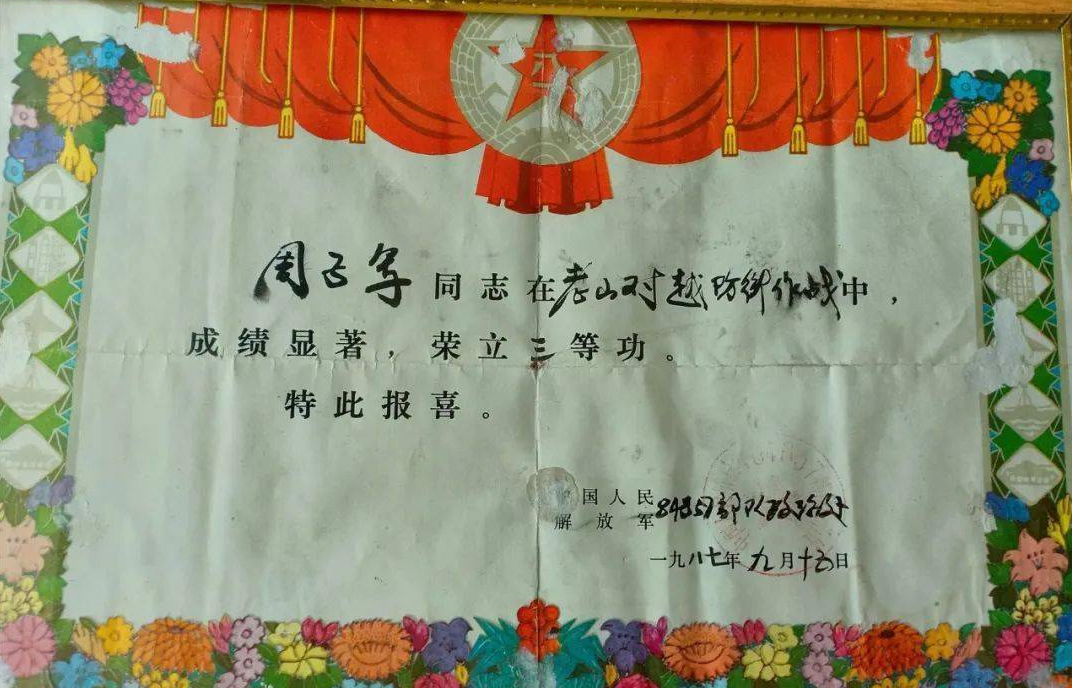 八一
周正军同志在老山对越防御作战中，
成绩显著，荣立三等功。
特此报喜。
中国人民
解放军
部队政治处
一九八七年九月十五日